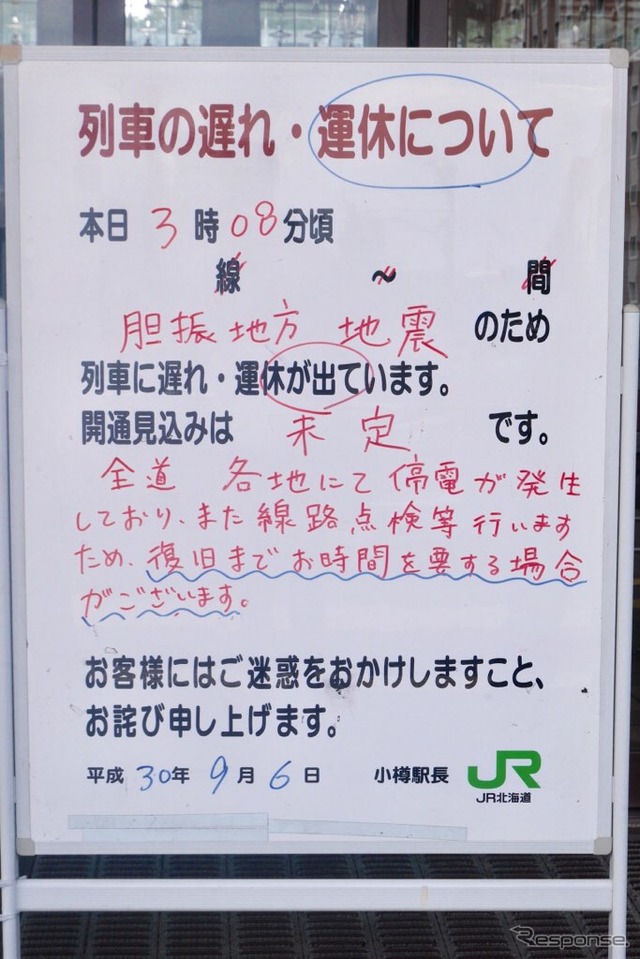 列車の遅れ・運休について
本日 3時08分頃
線 ~ 間
胆振地方 地震 のため
列車に遅れ・運休が出ています。
開通見込みは 未定 です。
全道 各地にて停電が発生
しており、また線路点検等行います
ため、復旧までお時間を要する場合
がございます。
お客様にはご迷惑をおかけしますこと、
お詫び申し上げます。
平成 30年 9月 6日 小樽駅長 JR
JR北海道
Response.